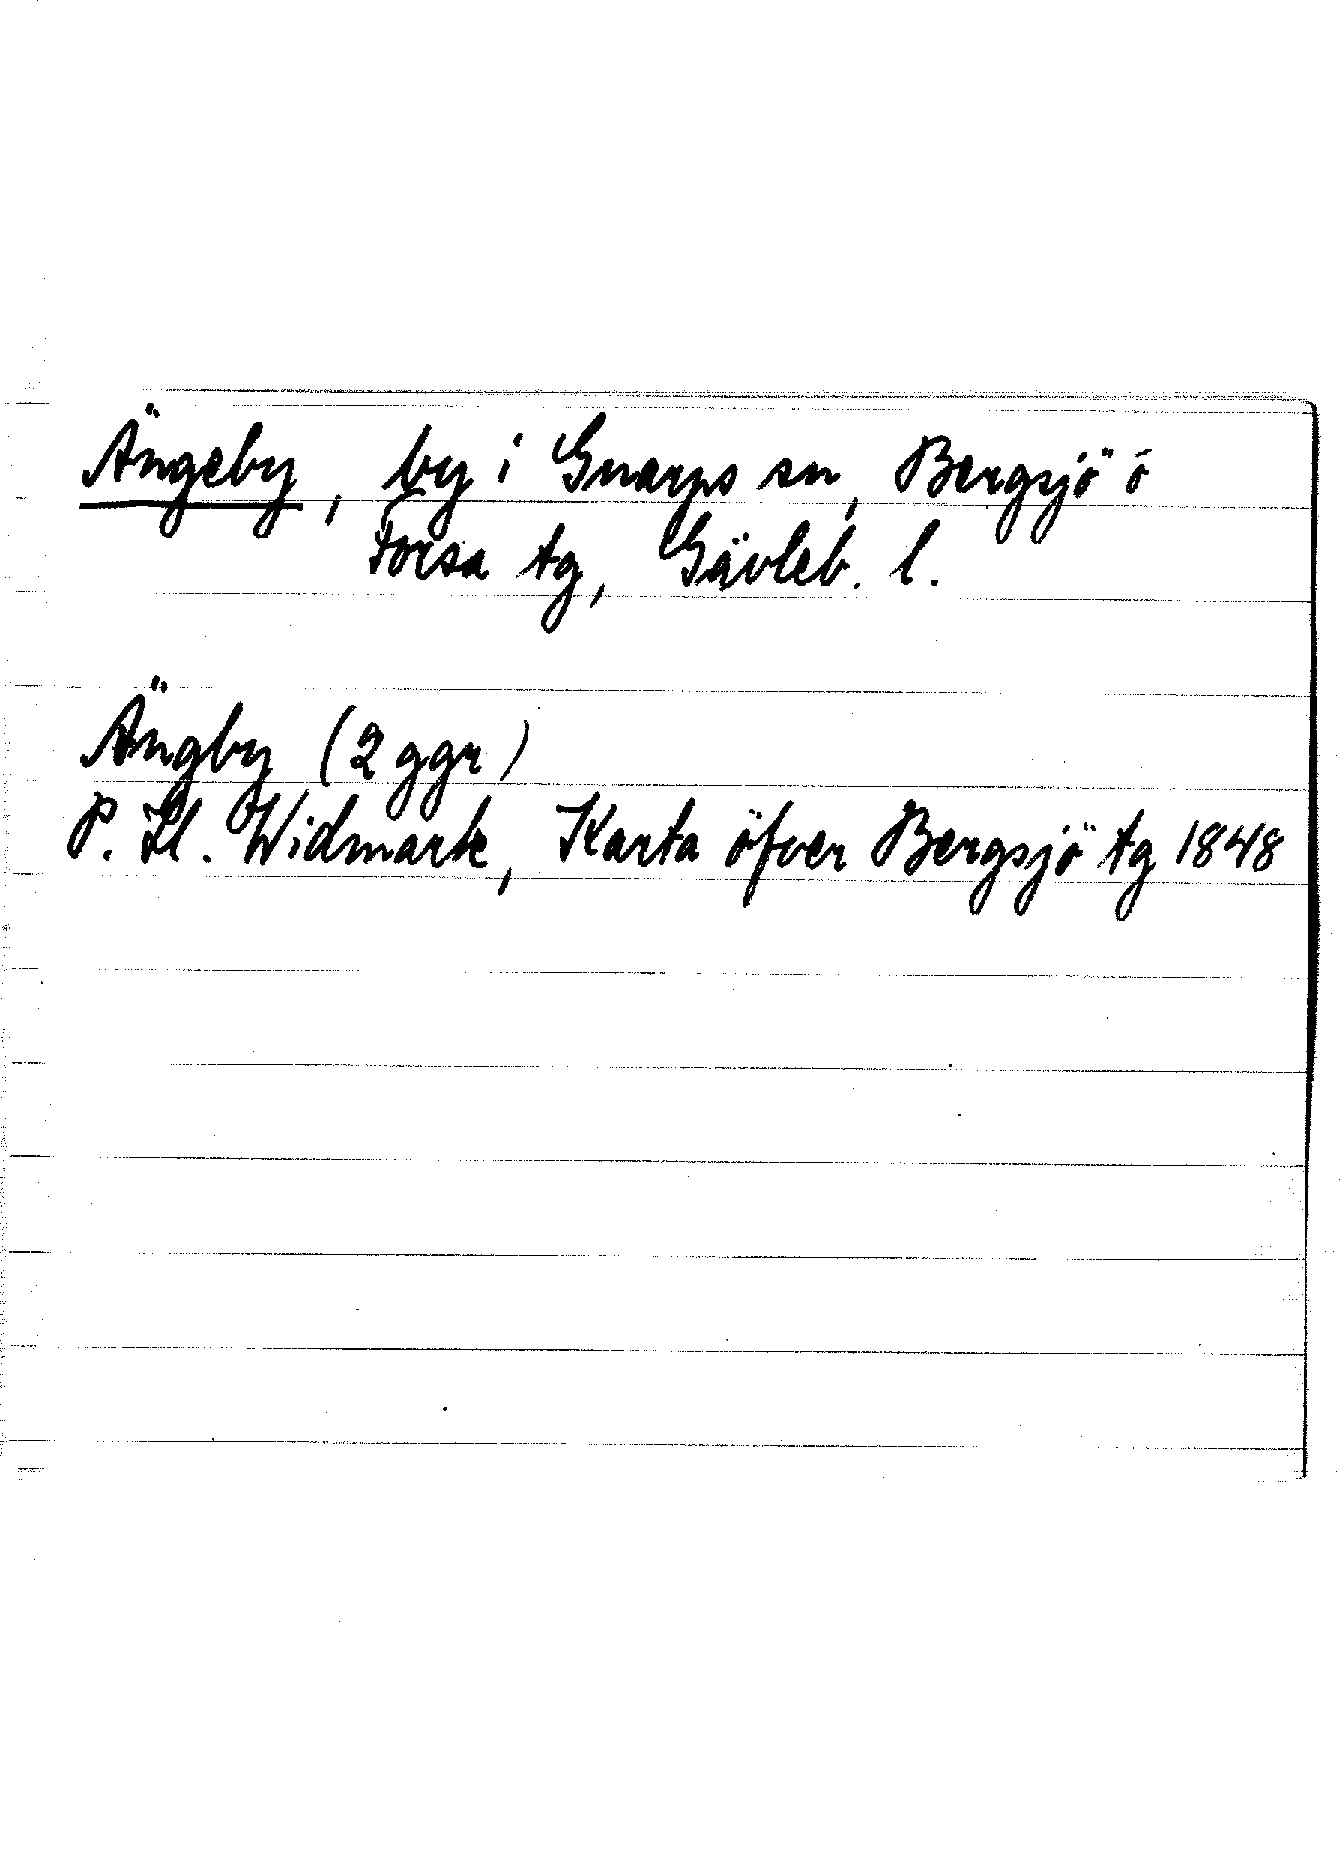 Ängeby, by i Gnarps sn, Bergsjö o
Forsa tg, Gävleb. l.
Ängby (2 ggr)
P. H. Widmark, Karta öfver Bergsjö tg 1848